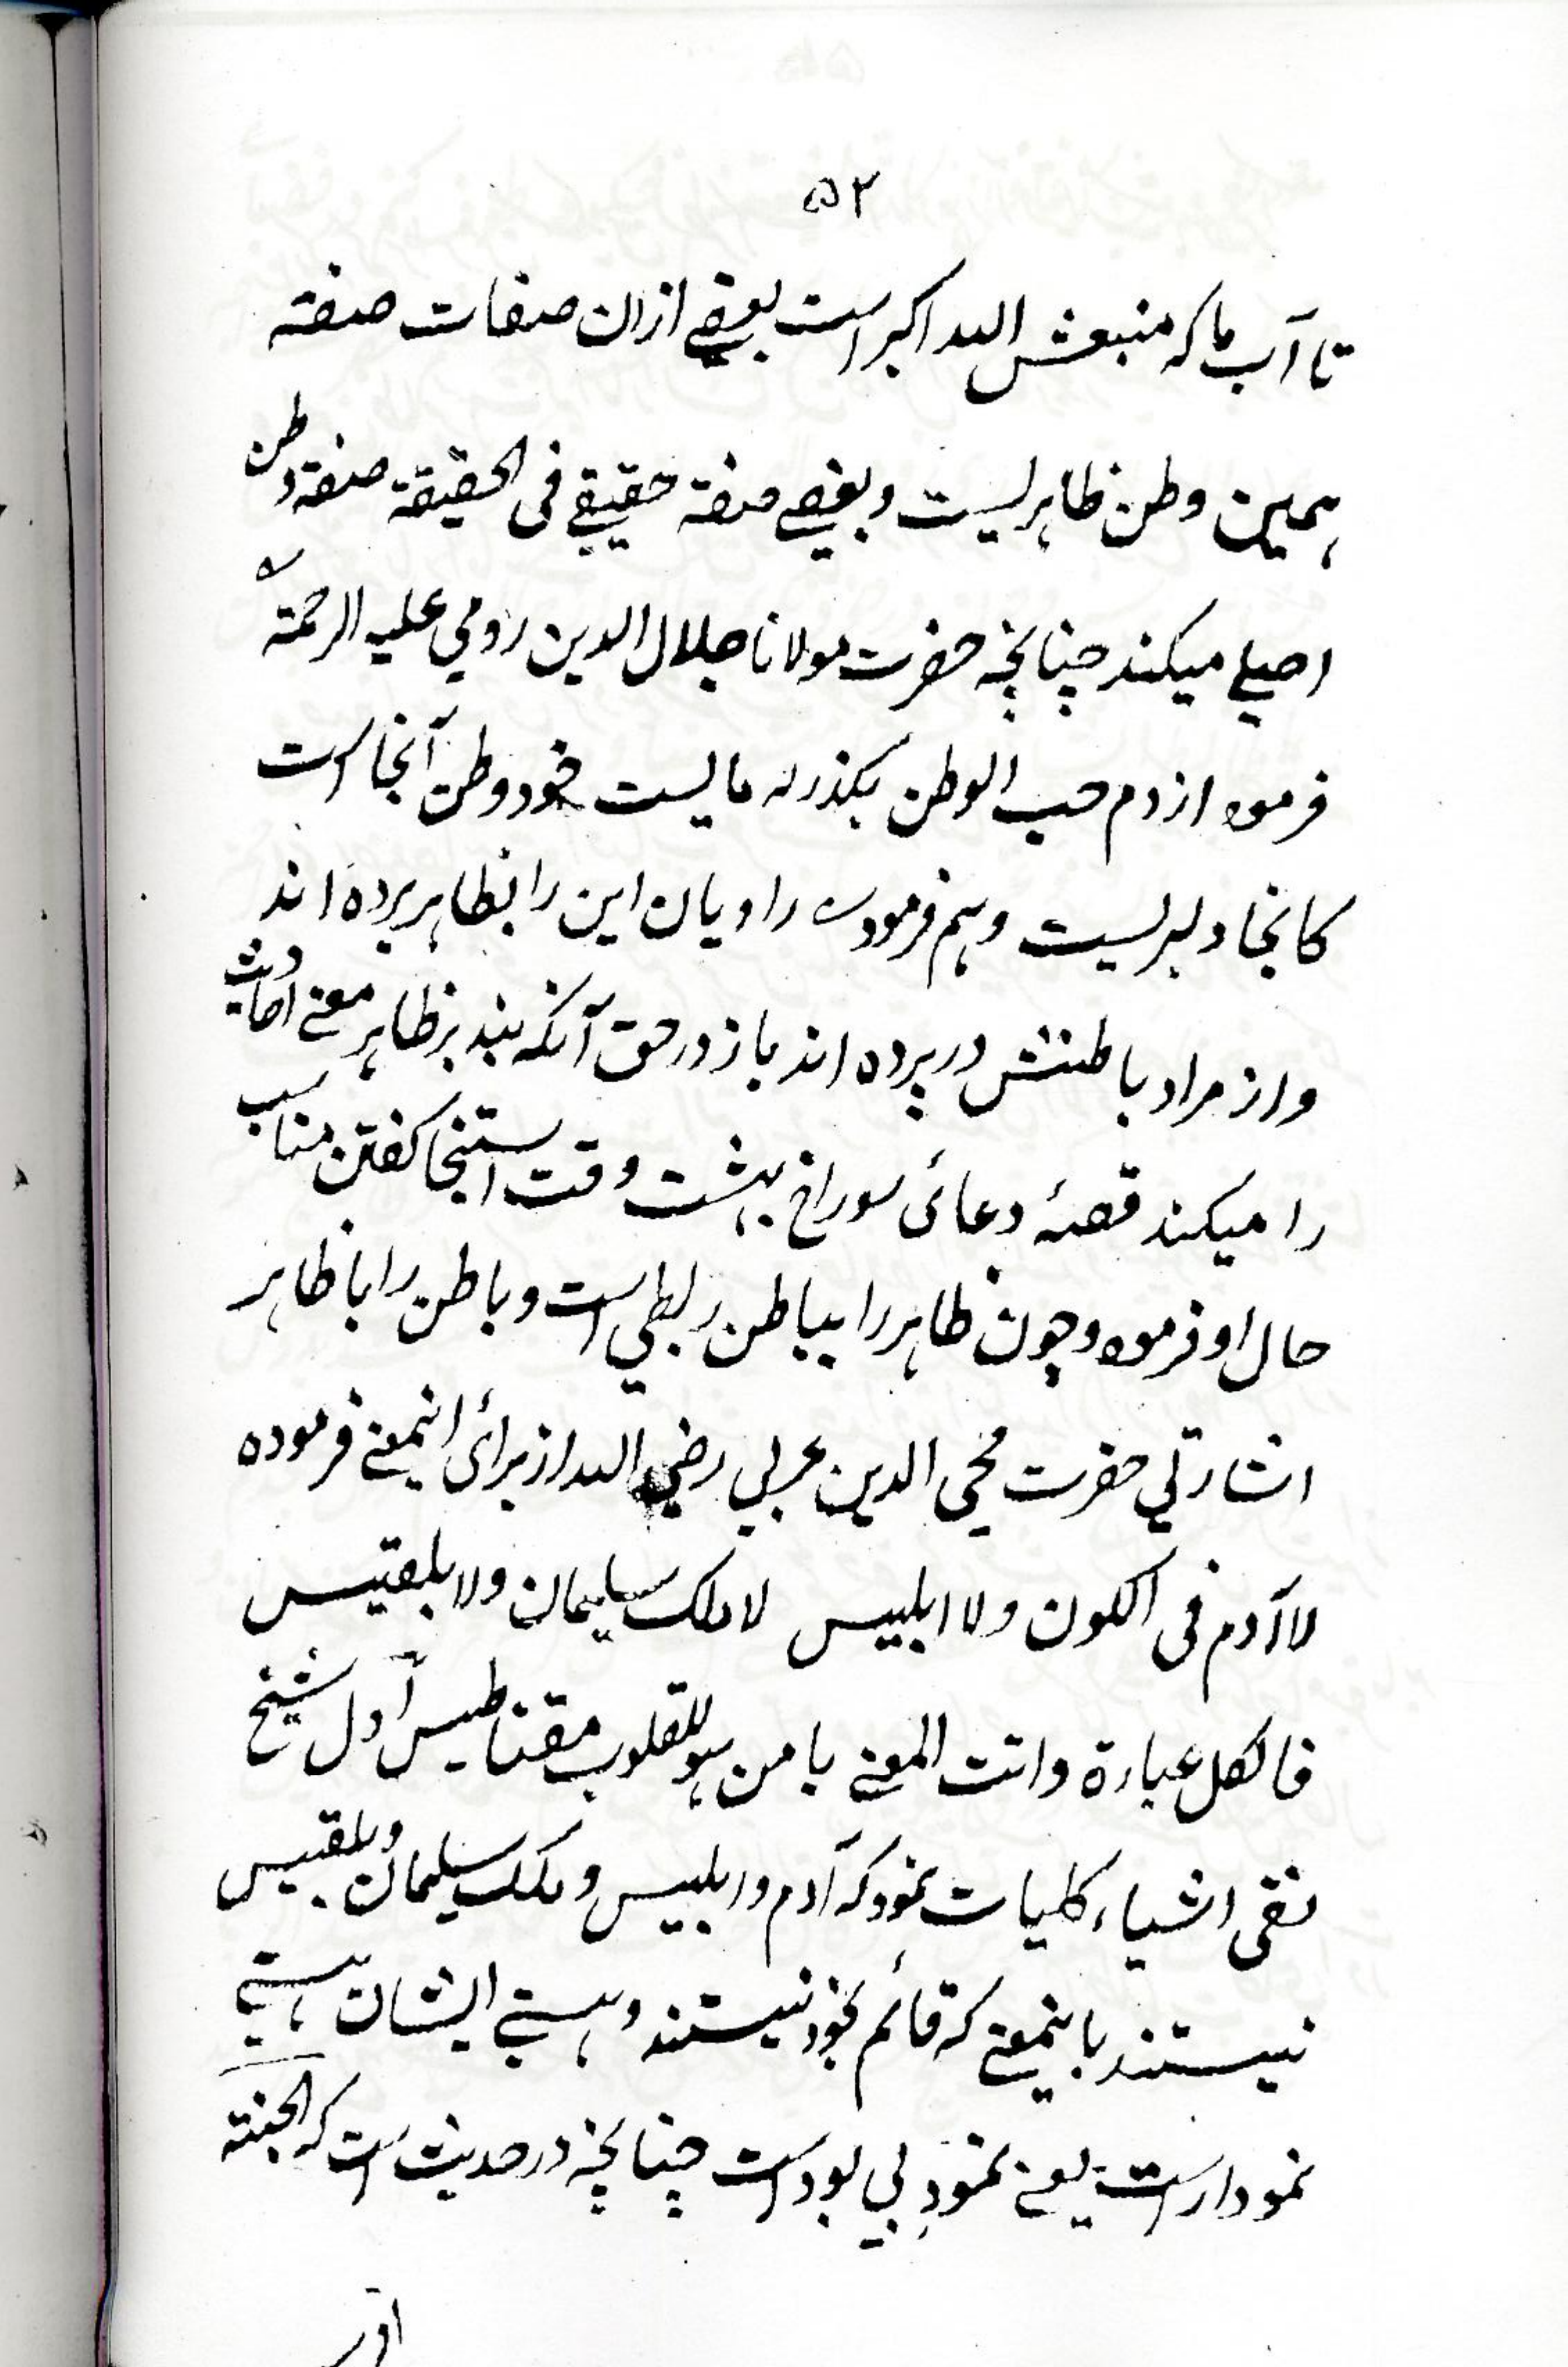 ۵۲
تا آب ما که منبعش الله اکبر است بعضے ازان صفات صفتہ
ہمین وطن ظاہریست و بعضے صفتہ حقیقے فی الحقیقۃ صفتہ وطن
اصلے میکند چنانچہ حضرت مولانا جلال الدین رومی علیہ الرحمتہ
فرمودہ از دم حب الوطن بکذر مایست خود وطن آنجا است
کانجا دلبریست و ہم فرمودہ راویان این را بظاہر بردہ اند
واز مراد باطنش در پردہ اند باز در حق آنکہ بند بر ظاہر معنے احادیث
را میکند قصۂ دعائی سوراخ بہشت وقت استنجا کفتن مناسب
حال او فرمودہ و چون ظاہر را بباطن ربطی است و باطن را با ظاہر
اشارتی حضرت محی الدین عربی رضی الله از برائی اینمعنے فرمودہ
لا آدم فی الکون ولا ابلیس لا ملک سلیمان ولا بلقیس
فالکل عبارۃ وانت المعنے یا من ہو للقلوب مقناطیس اول شیخ
نفی اشیاء کلیات نمود کہ آدم و ابلیس و ملک سلیمان و بلقیس
نیستند باینمعنے کہ قائم بخود نیستند و ہستے ایشان ہستے
نمودار است یعنے نمودِ بی بود است چنانچہ در حدیث است کہ الجنتہ